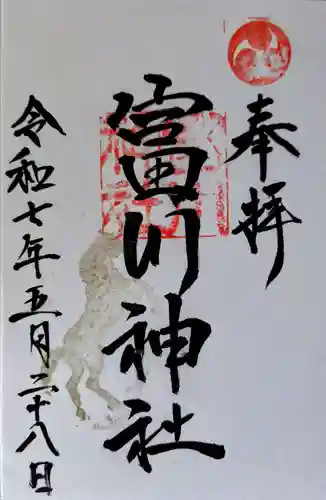 奉拝
富田川神社
令和七年五月二十八日